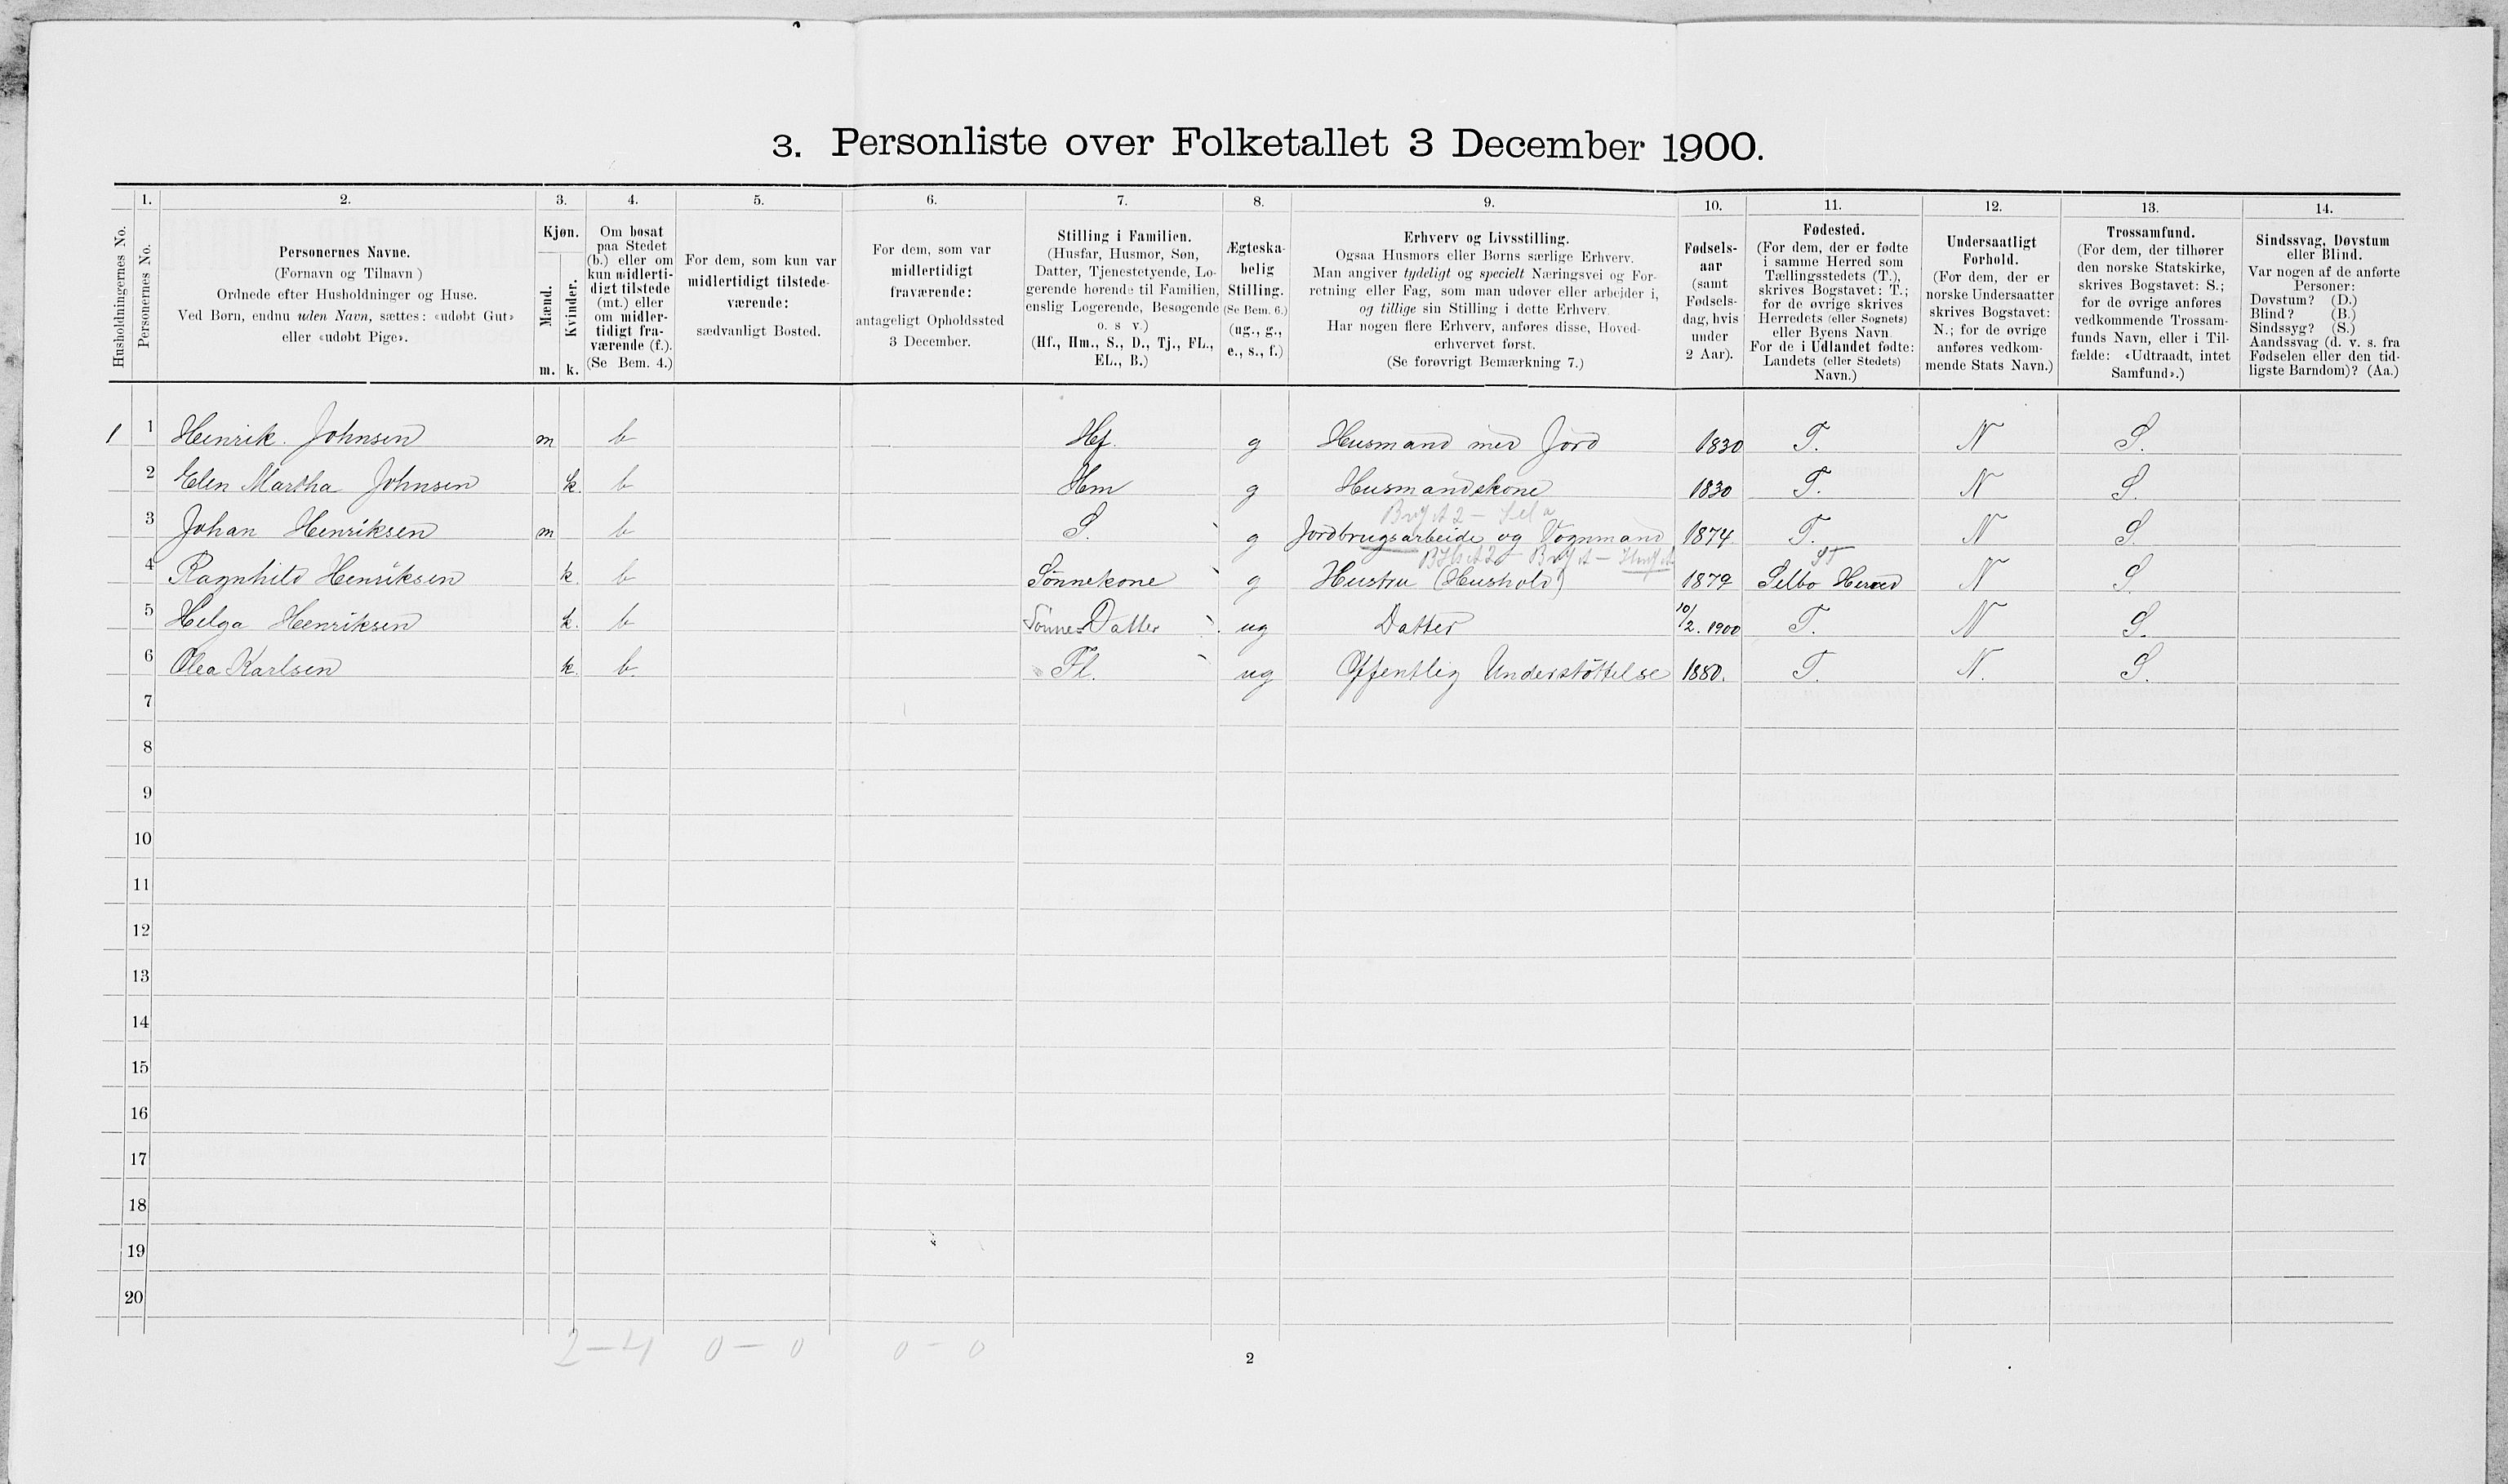 3. Personliste over Folketallet 3 December 1900.
1. 2. 3. 4. 5. 6. 7. 8. 9. 10. 11. 12. 13. 14.
Husholdningernes No.
Personernes No.
Personernes Navne.
(Fornavn og Tilnavn)
Ordnede efter Husholdninger og Huse.
Ved Børn, endnu uden Navn, sættes: «udøbt Gut»
eller «udøbt Pige».
Kjøn.
Mænd.
Kvinder.
m. k.
Om bosat
paa Stedet
(b.) eller om
kun midlerti-
digt tilstede
(mt.) eller
om midler-
tidigt fra-
værende (f.).
(Se Bem. 4.)
For dem, som kun var
midlertidigt tilstede-
værende:
sædvanligt Bosted.
For dem, som var
midlertidigt
fraværende:
antageligt Opholdssted
3 December.
Stilling i Familien.
(Husfar, Husmor, Søn,
Datter, Tjenestetyende, Lo-
gerende hørende til Familien,
enslig Logerende, Besøgende
o. s v.)
(Hf., Hm., S., D., Tj., FL.,
EL., B.)
Ægteska-
belig
Stilling.
(Se Bem. 6.)
(ug., g.,
e., s., f.)
Erhverv og Livsstilling.
Ogsaa Husmors eller Børns særlige Erhverv.
Man angiver tydeligt og specielt Næringsvei og For-
retning eller Fag, som man udøver eller arbejder i,
og tillige sin Stilling i dette Erhverv.
Har nogen flere Erhverv, anføres disse, Hoved-
erhvervet først.
(Se forøvrigt Bemærkning 7.)
Fødsels-
aar
(samt
Fødsels-
dag, hvis
under
2 Aar).
Fødested.
(For dem, der er fødte
i samme Herred som
Tællingsstedets (T.),
skrives Bogstavet: T.;
for de øvrige skrives
Herredets (eller Sognets)
eller Byens Navn
For de i Udlandet fødte:
Landets (eller Stedets)
Navn.)
Undersaatligt
Forhold.
(For dem, der er
norske Undersaatter
skrives Bogstavet:
N.; for de øvrige
anføres vedkom-
mende Stats Navn.)
Trossamfund.
(For dem, der tilhører
den norske Statskirke,
skrives Bogstavet: S.;
for de øvrige anføres
vedkommende Trossam-
funds Navn, eller i Til-
fælde: «Udtraadt, intet
Samfund».)
Sindssvag, Døvstum
eller Blind.
Var nogen af de anførte
Personer:
Døvstum? (D.)
Blind? (B.)
Sindssyg? (S.)
Aandssvag (d. v. s. fra
Fødselen eller den tid-
ligste Barndom)? (Aa.)
1 1 Henrik Johnsen m b Hf. g Husmand med Jord 1830 T. N S.
2 Elen Martha Johnsen k. b Hm g Husmandskone 1830 T. N S.
3 Johan Henriksen m b S. g Jordbrugsarbeide og Vognmand 1874 T. N S.
4 Ragnhild Henriksen k. b Sønnekone g Hustru (Hushold) 1879 Selbo Herred N S.
5 Helga Henriksen k. b Sønnes Datter ug Datter 10/2. 1900 T. N S.
6 Olea Karlsen k. b. Fl. ug Offentlig Understøttelse 1880. T. N. S.
7
8
9
10
11
12
13
14
15
16
17
18
19
20
2-4 0-0 0-0
2